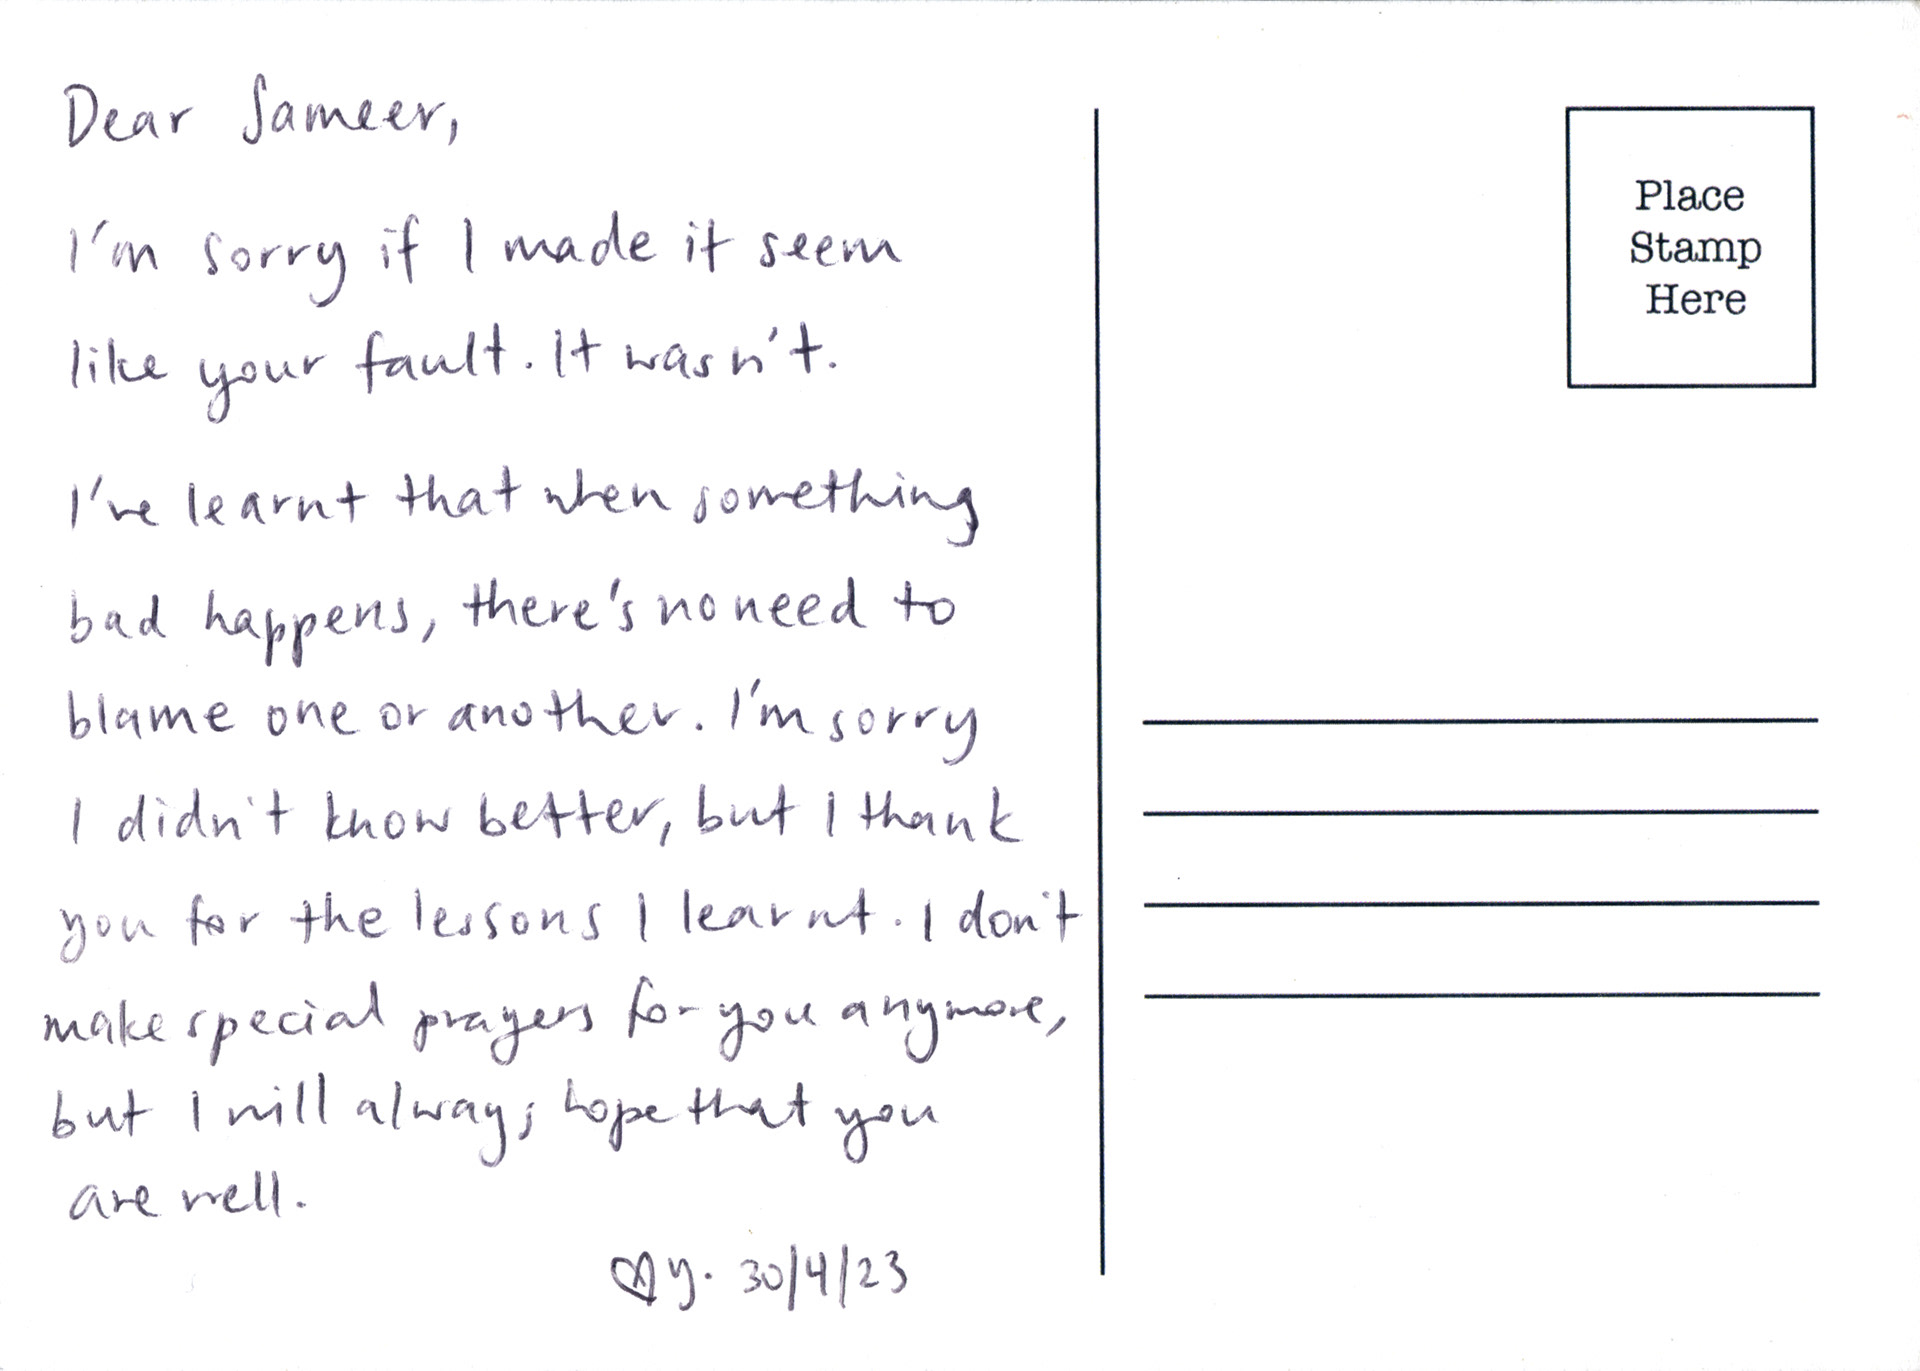 Dear Sameer,
I'm sorry if I made it seem
like your fault. It wasn't.
I've learnt that when something
bad happens, there's no need to
blame one or another. I'm sorry
I didn't know better, but I thank
you for the lessons I learnt. I don't
make special prayers for you anymore,
but I will always hope that you
are well.
♡ y. 30/4/23
Place
Stamp
Here